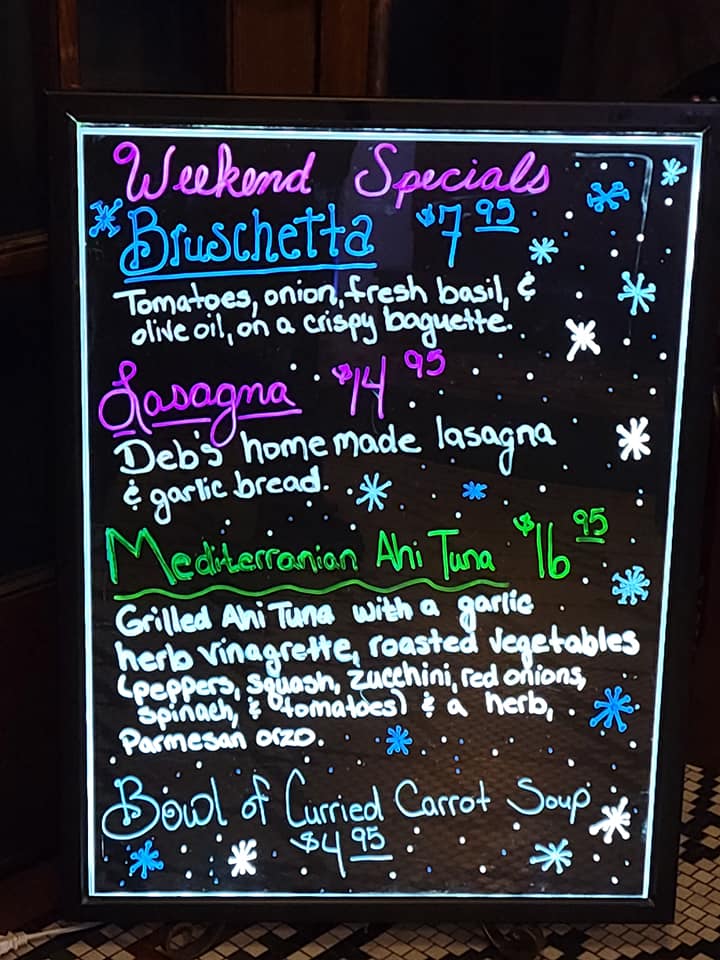 Weekend Specials
Bruschetta $7 95
Tomatoes, onion, fresh basil, &
olive oil, on a crispy baguette.
Lasagna $14 95
Deb's homemade lasagna
& garlic bread.
Mediterranian Ahi Tuna $16 95
Grilled Ahi Tuna with a garlic
herb vinagrette, roasted vegetables
(peppers, squash, zucchini, red onions,
spinach, & tomatoes) & a herb,
Parmesan orzo.
Bowl of Curried Carrot Soup
$4 95